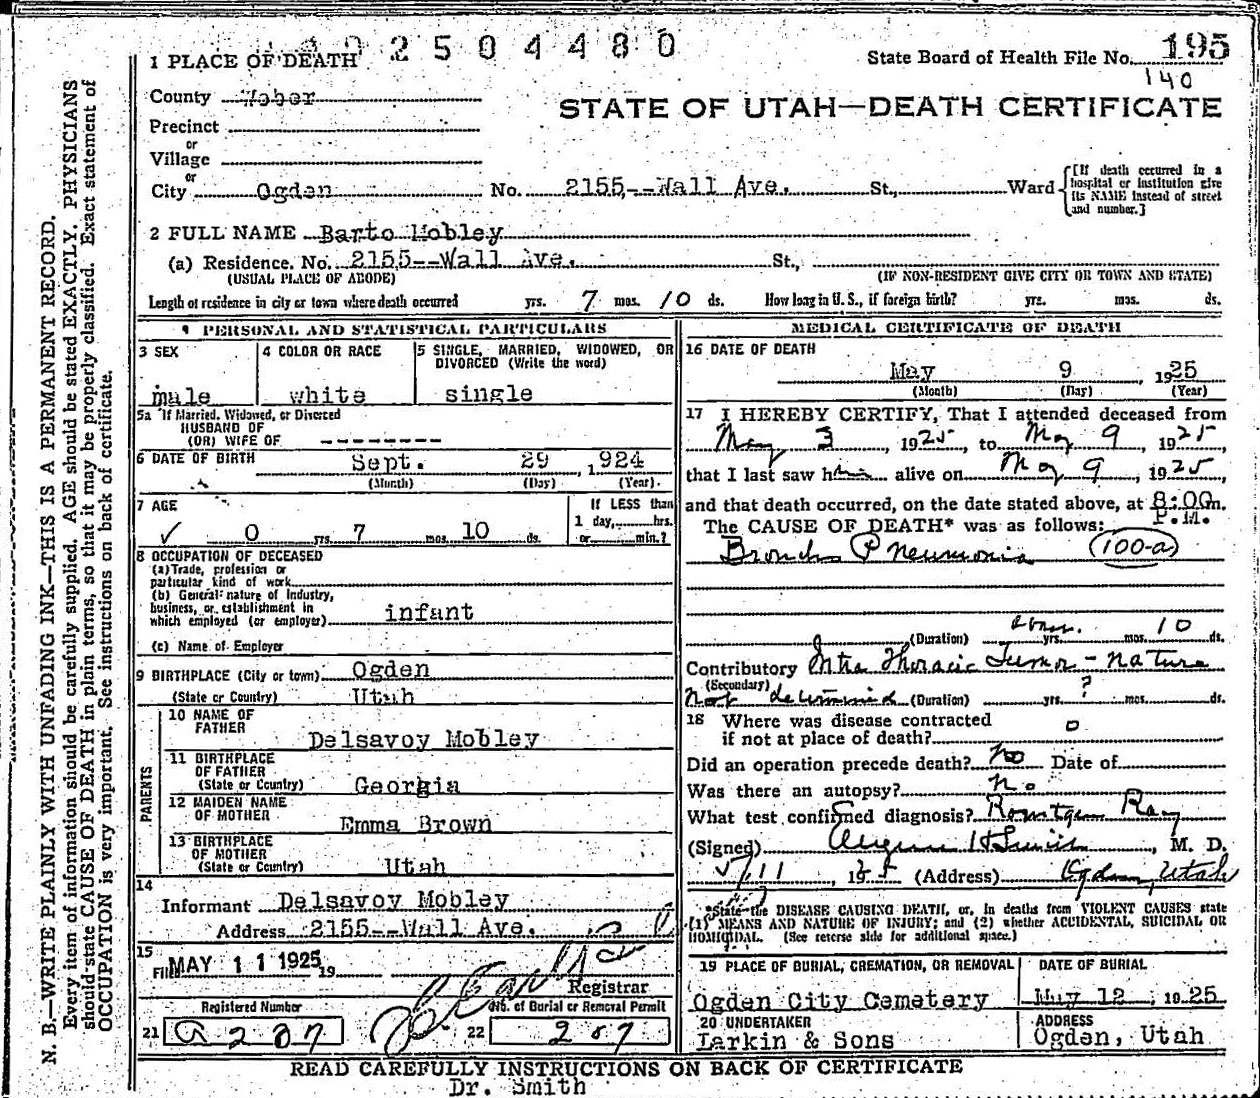 2 5 0 4 4 8 0
1 PLACE OF DEATH
State Board of Health File No. 195
140
County Weber
STATE OF UTAH—DEATH CERTIFICATE
Precinct
or
Village
or
City Ogden No. 2155--Wall Ave. St., Ward
[If death occurred in a
hospital or institution give
its NAME instead of street
and number.]
2 FULL NAME Barto Mobley
(a) Residence. No. 2155--Wall Ave. St.,
(USUAL PLACE OF ABODE) (IF NON-RESIDENT GIVE CITY OR TOWN AND STATE)
Length of residence in city or town where death occurred yrs. 7 mos. 10 ds. How long in U. S., if foreign birth? yrs. mos. ds.
PERSONAL AND STATISTICAL PARTICULARS
3 SEX
male
4 COLOR OR RACE
white
5 SINGLE, MARRIED, WIDOWED, OR
DIVORCED (Write the word)
single
5a If Married, Widowed, or Divorced
HUSBAND OF
(OR) WIFE OF --------
6 DATE OF BIRTH Sept. 29, 1924
(Month) (Day) (Year)
7 AGE
✓ 0 yrs. 7 mos. 10 ds.
If LESS than
1 day, hrs.
or min.?
8 OCCUPATION OF DECEASED
(a) Trade, profession or
particular kind of work
(b) General nature of Industry,
business, or establishment in
which employed (or employer) infant
(c) Name of Employer
9 BIRTHPLACE (City or town) Ogden
(State or Country) Utah
PARENTS
10 NAME OF
FATHER
Delsavoy Mobley
11 BIRTHPLACE
OF FATHER
(State or Country) Georgia
12 MAIDEN NAME
OF MOTHER
Emma Brown
13 BIRTHPLACE
OF MOTHER
(State or Country) Utah
14
Informant Delsavoy Mobley
Address 2155--Wall Ave.
15
Filed MAY 11 1925 19
Registrar
Registered Number
21 a 207
No. of Burial or Removal Permit
22 207
MEDICAL CERTIFICATE OF DEATH
16 DATE OF DEATH
May 9, 1925
(Month) (Day) (Year)
17 I HEREBY CERTIFY, That I attended deceased from
May 3, 1925, to May 9 1925
that I last saw him alive on May 9, 1925
and that death occurred, on the date stated above, at 8:00 m.
P.M.
The CAUSE OF DEATH* was as follows:
Broncho Pneumonia (100-a)
(Duration) yrs. mos. 10 ds.
Contributory Intra Thoracic Tumor - nature
(Secondary)
not determined (Duration) yrs. ? mos. ds.
18 Where was disease contracted
if not at place of death? 0
Did an operation precede death? No Date of
Was there an autopsy? No
What test confirmed diagnosis? Roentgen Ray
(Signed) M. D.
5/11, 1925 (Address) Ogden, Utah
*State the DISEASE CAUSING DEATH, or, in deaths from VIOLENT CAUSES state
(1) MEANS AND NATURE OF INJURY; and (2) whether ACCIDENTAL, SUICIDAL OR
HOMICIDAL. (See reverse side for additional space.)
19 PLACE OF BURIAL, CREMATION, OR REMOVAL
Ogden City Cemetery
DATE OF BURIAL
May 12, 1925
20 UNDERTAKER
Larkin & Sons
ADDRESS
Ogden, Utah
READ CAREFULLY INSTRUCTIONS ON BACK OF CERTIFICATE
Dr. Smith
N. B.—WRITE PLAINLY WITH UNFADING INK—THIS IS A PERMANENT RECORD.
Every item of information should be carefully supplied. AGE should be stated EXACTLY. PHYSICIANS
should state CAUSE OF DEATH in plain terms, so that it may be properly classified. Exact statement of
OCCUPATION is very important. See instructions on back of certificate.